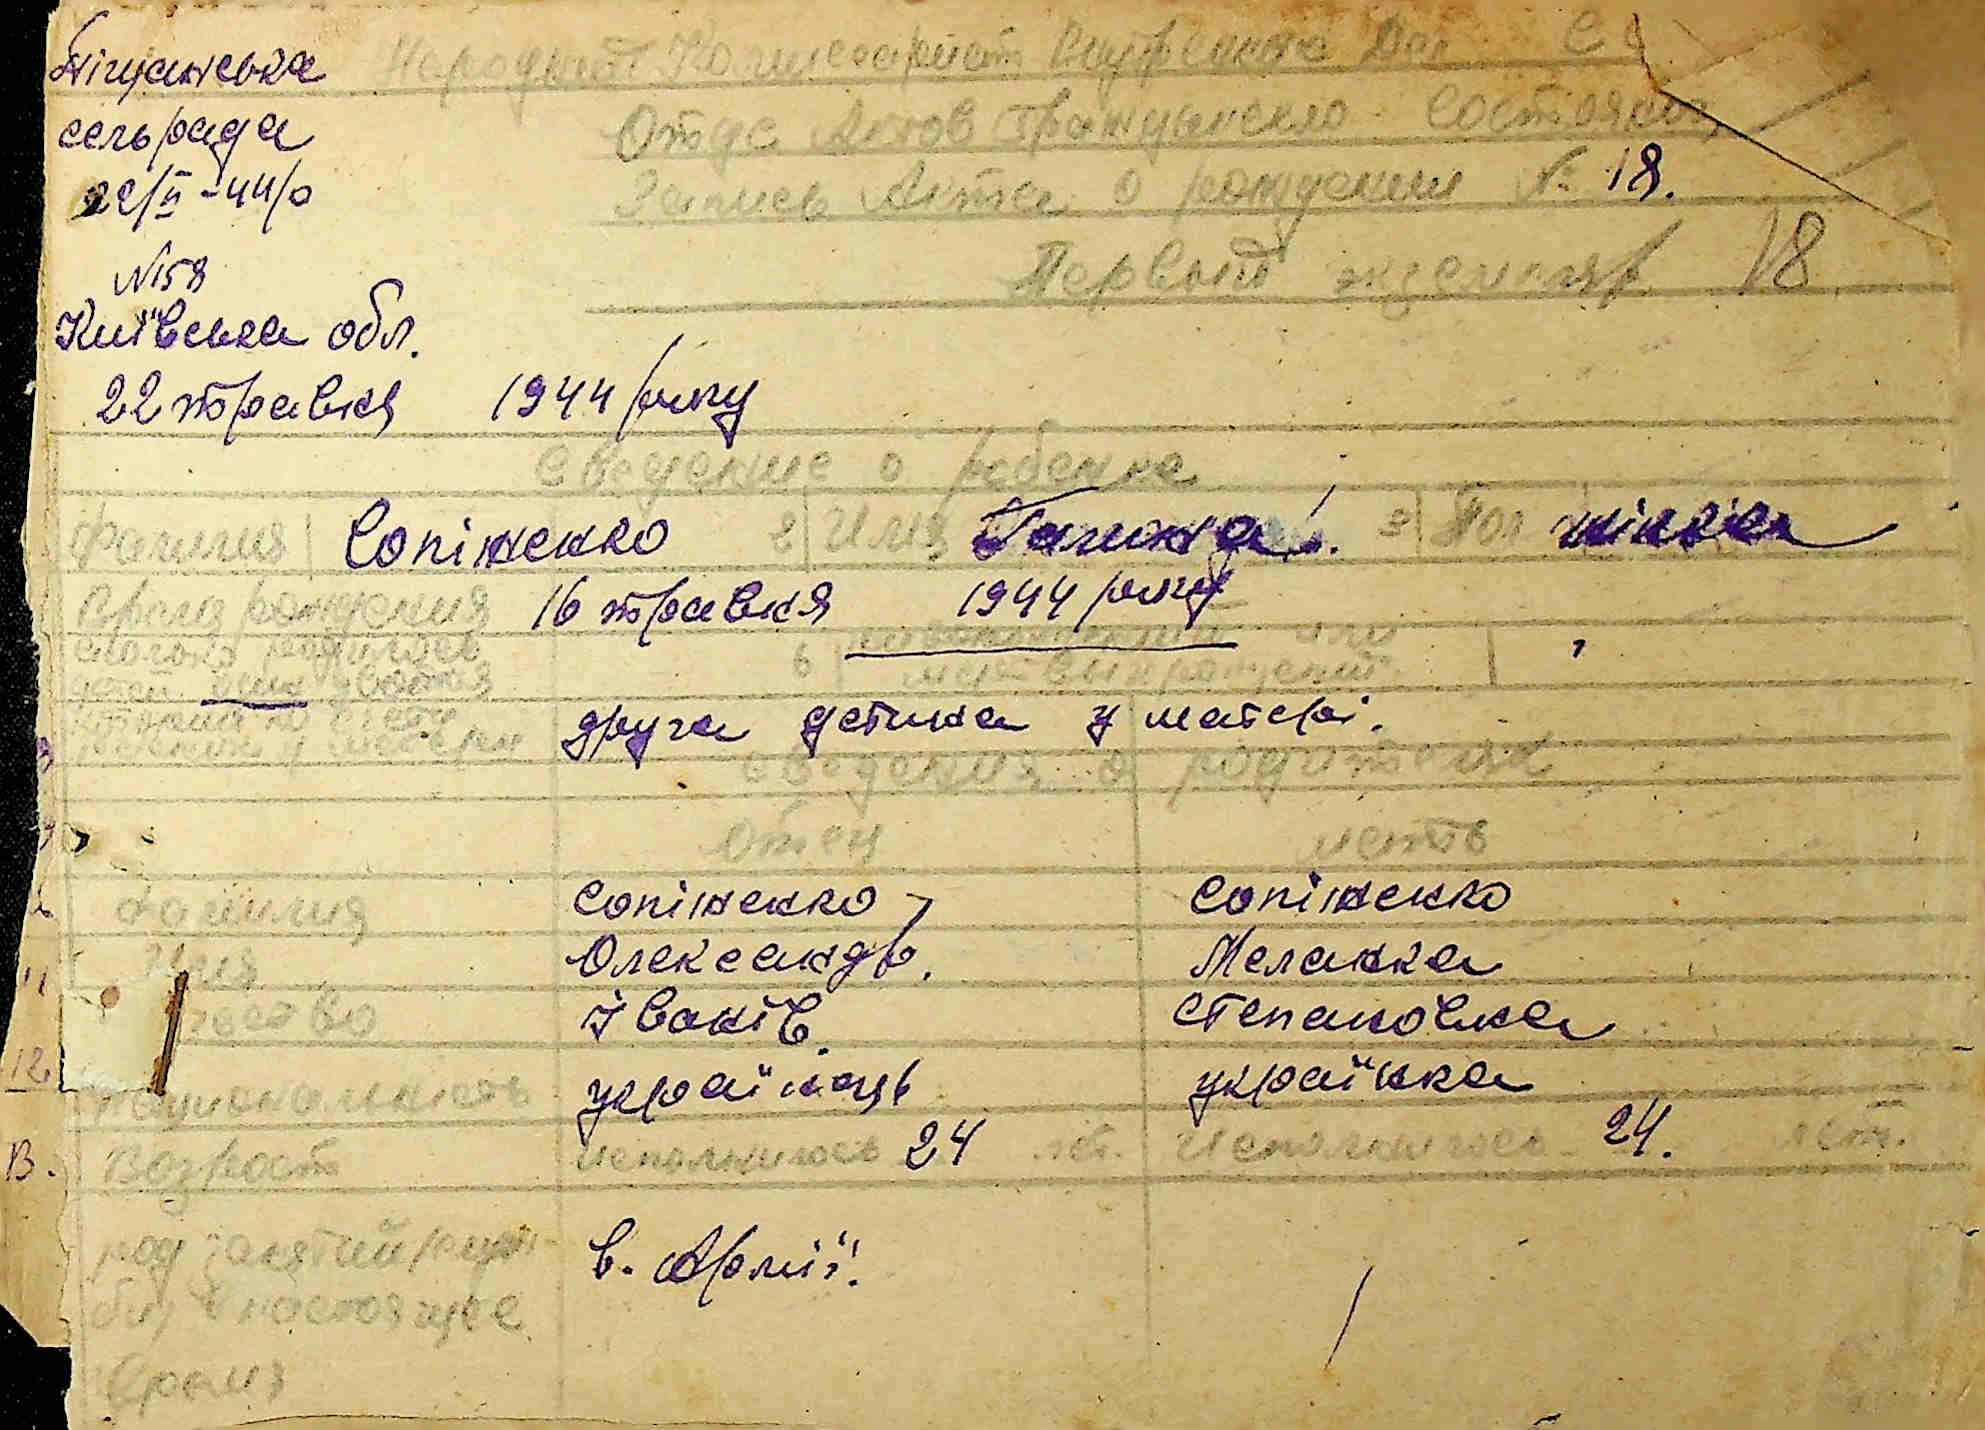 Піщанська
сельрада
22/V-44/р
N158
Київська обл.
22 травня 1944 року
Народный Комиссариат Внутренних Дел С
Отдел Актов Гражданского Состояния
Запись Акта о рождении № 18.
Первый экземпляр 18
Сведение о ребенке
Фамилия Сопіженко 2 Имя Галина 3 Пол жіноча
Время рождения 16 травня 1944 року
сколько родилось
детей один двойня 6 живорожденный или
мертворожденный
которий по счету
ребенок у матери друга детина у матері.
сведения о родителях
Отец мать
Фамилия Сопіженко Сопіженко
Имя Олександр. Меланка
чество Іванів. Степановна
Национальность українець українка
Возраст исполнилось 24 лет. исполнилось 24. лет.
род занятий
в настоящее в. Армії.
время
12
13.